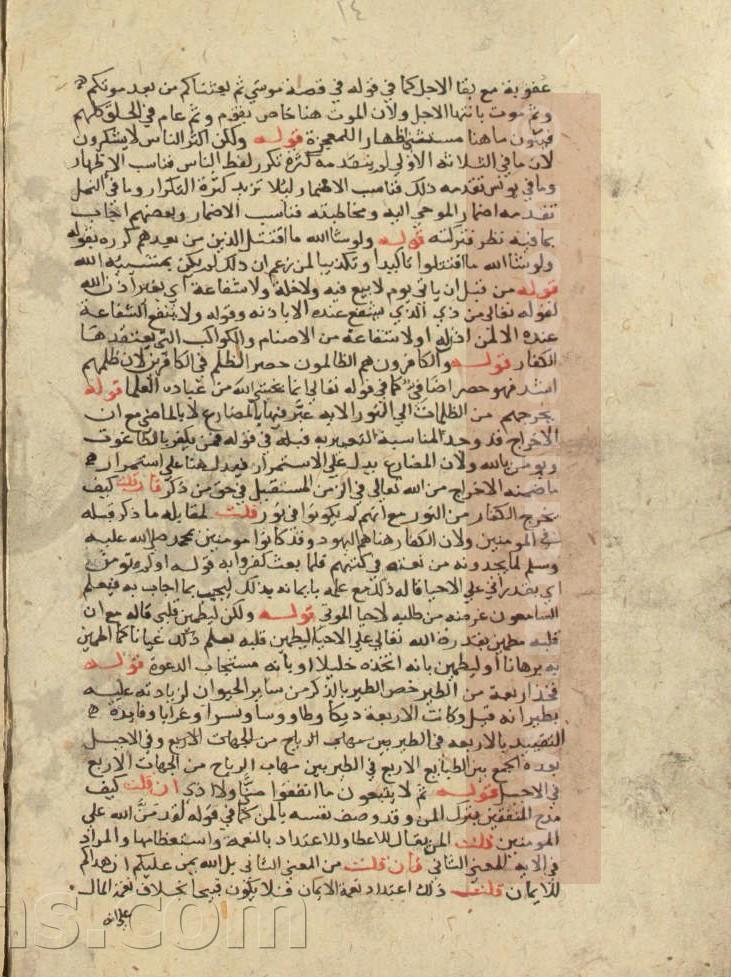 ١٤
عقوبة مع بقا الاجل كما في قوله في قصة موسي ثم بعثناكم من بعد موتكم
وثم موت بانتها الاجل ولان الموت هنا خاص بقوم وثم عام في الخلق كلهم
فيكون ما هنا مستثني اظهارا للمعجزة قوله ولكن اكثر الناس لا يشكرون
لان ما في الثلاثة الاولي لم يتقدمه كثرة تكرر لفظ الناس فناسب الاظهار
وما في يونس تقدمه ذلك فناسب الاضمار ليلا تزيد كثرة التكرار وما في النمل
تقدمه اضمار الموحي اليه ومخاطبته فناسب الاضمار وبعضهم اجاب
بما فيه نظر فتركته قوله ولو شا الله ما اقتتل الذين من بعدهم كرره بقوله
ولو شا الله ما اقتتلوا تاكيدا وتكذيبا لمن زعم ان ذلك لم يكن بمشيية الله
قوله من قبل ان ياتي يوم لا بيع فيه ولا خلة ولا شفاعة اي بغير اذن الله
لقوله تعالي من ذي الذي يشفع عنده الا باذنه وقوله ولا ينفع الشفاعة
عنده الا لمن اذن له او لا شفاعة من الاصنام والكواكب التي يعتقدها
الكفار قوله والكافرون هم الظالمون حصر الظلم في الكافرين لان ظلمهم
اشد فهو حصر اضافي كما في قوله تعالي انما يخشي الله من عباده العلما قوله
يخرجهم من الظلمات الي النور الايه عبر فيها بالمضارع لا بالماضي مع ان
الاخراج قد وجد المناسبة التعبير به قبله في قوله فمن يكفر بالطاغوت
ويومن بالله ولان المضارع يدل علي الاستمرار فيدل هنا علي استمرار
ما ضمنه الاخراج من الله تعالي في الزمن المستقبل في حق من ذكر فان قلت كيف
يخرج الكفار من النور مع انهم لم يكونوا في نور قلت لمقابلة ما ذكر قبله
في المومنين ولان الكفار هنا هم اليهود وقد كانوا مومنين بمحمد صلي الله عليه
وسلم لما يجدونه من نعته في كتبهم فلما بعث كفروا به قوله اولم تومن
اي بقدرتي علي الاحيا قاله ذلك مع علمه بايمانه بذلك ليجيب بما اجاب به فيعلم
السامعون غرضه من طلبه لاحيا الموتي قوله ولكن ليطمين قلبي قاله مع ان
قلبه مطمين بقدرة الله تعالي علي الاحيا ليطمين قلبه بعلم ذلك عيانا كما اطمين
به برهانا او ليطمين بانه اتخذه خليلا او بانه مستجاب الدعوة قوله
فخذ اربعة من الطير خص الطير بالذكر من ساير الحيوان لزيادته عليه
بطيرانه قيل وكانت الاربعة ديكا وطاووسا ونسرا وغرابا وفايدة
التقييد بالاربعة في الطير بين مهاب الرياح من الجهات الاربع وفي الاجبل
بعده الجمع بين الطبايع الاربع في الطير بين مهاب الرياح من الجهات الاربع
في الاجبل قوله ثم لا يتبعون ما انفقوا منا ولا اذي ان قلت كيف
مدح المنفقين بترك المن وقد وصف نفسه بالمن كما في قوله لقد من الله علي
المومنين قلت المن يقال للاعطا وللاعتداد بالنعمة واستعظامها والمراد
في الاية المعني الثاني فان قلت من المعني الثاني بل الله يمن عليكم ان هداكم
للايمان قلت ذلك اعتداد نعمة الايمان فلا يكون قبيحا بخلاف نعمة المال
علي انه
ns.com